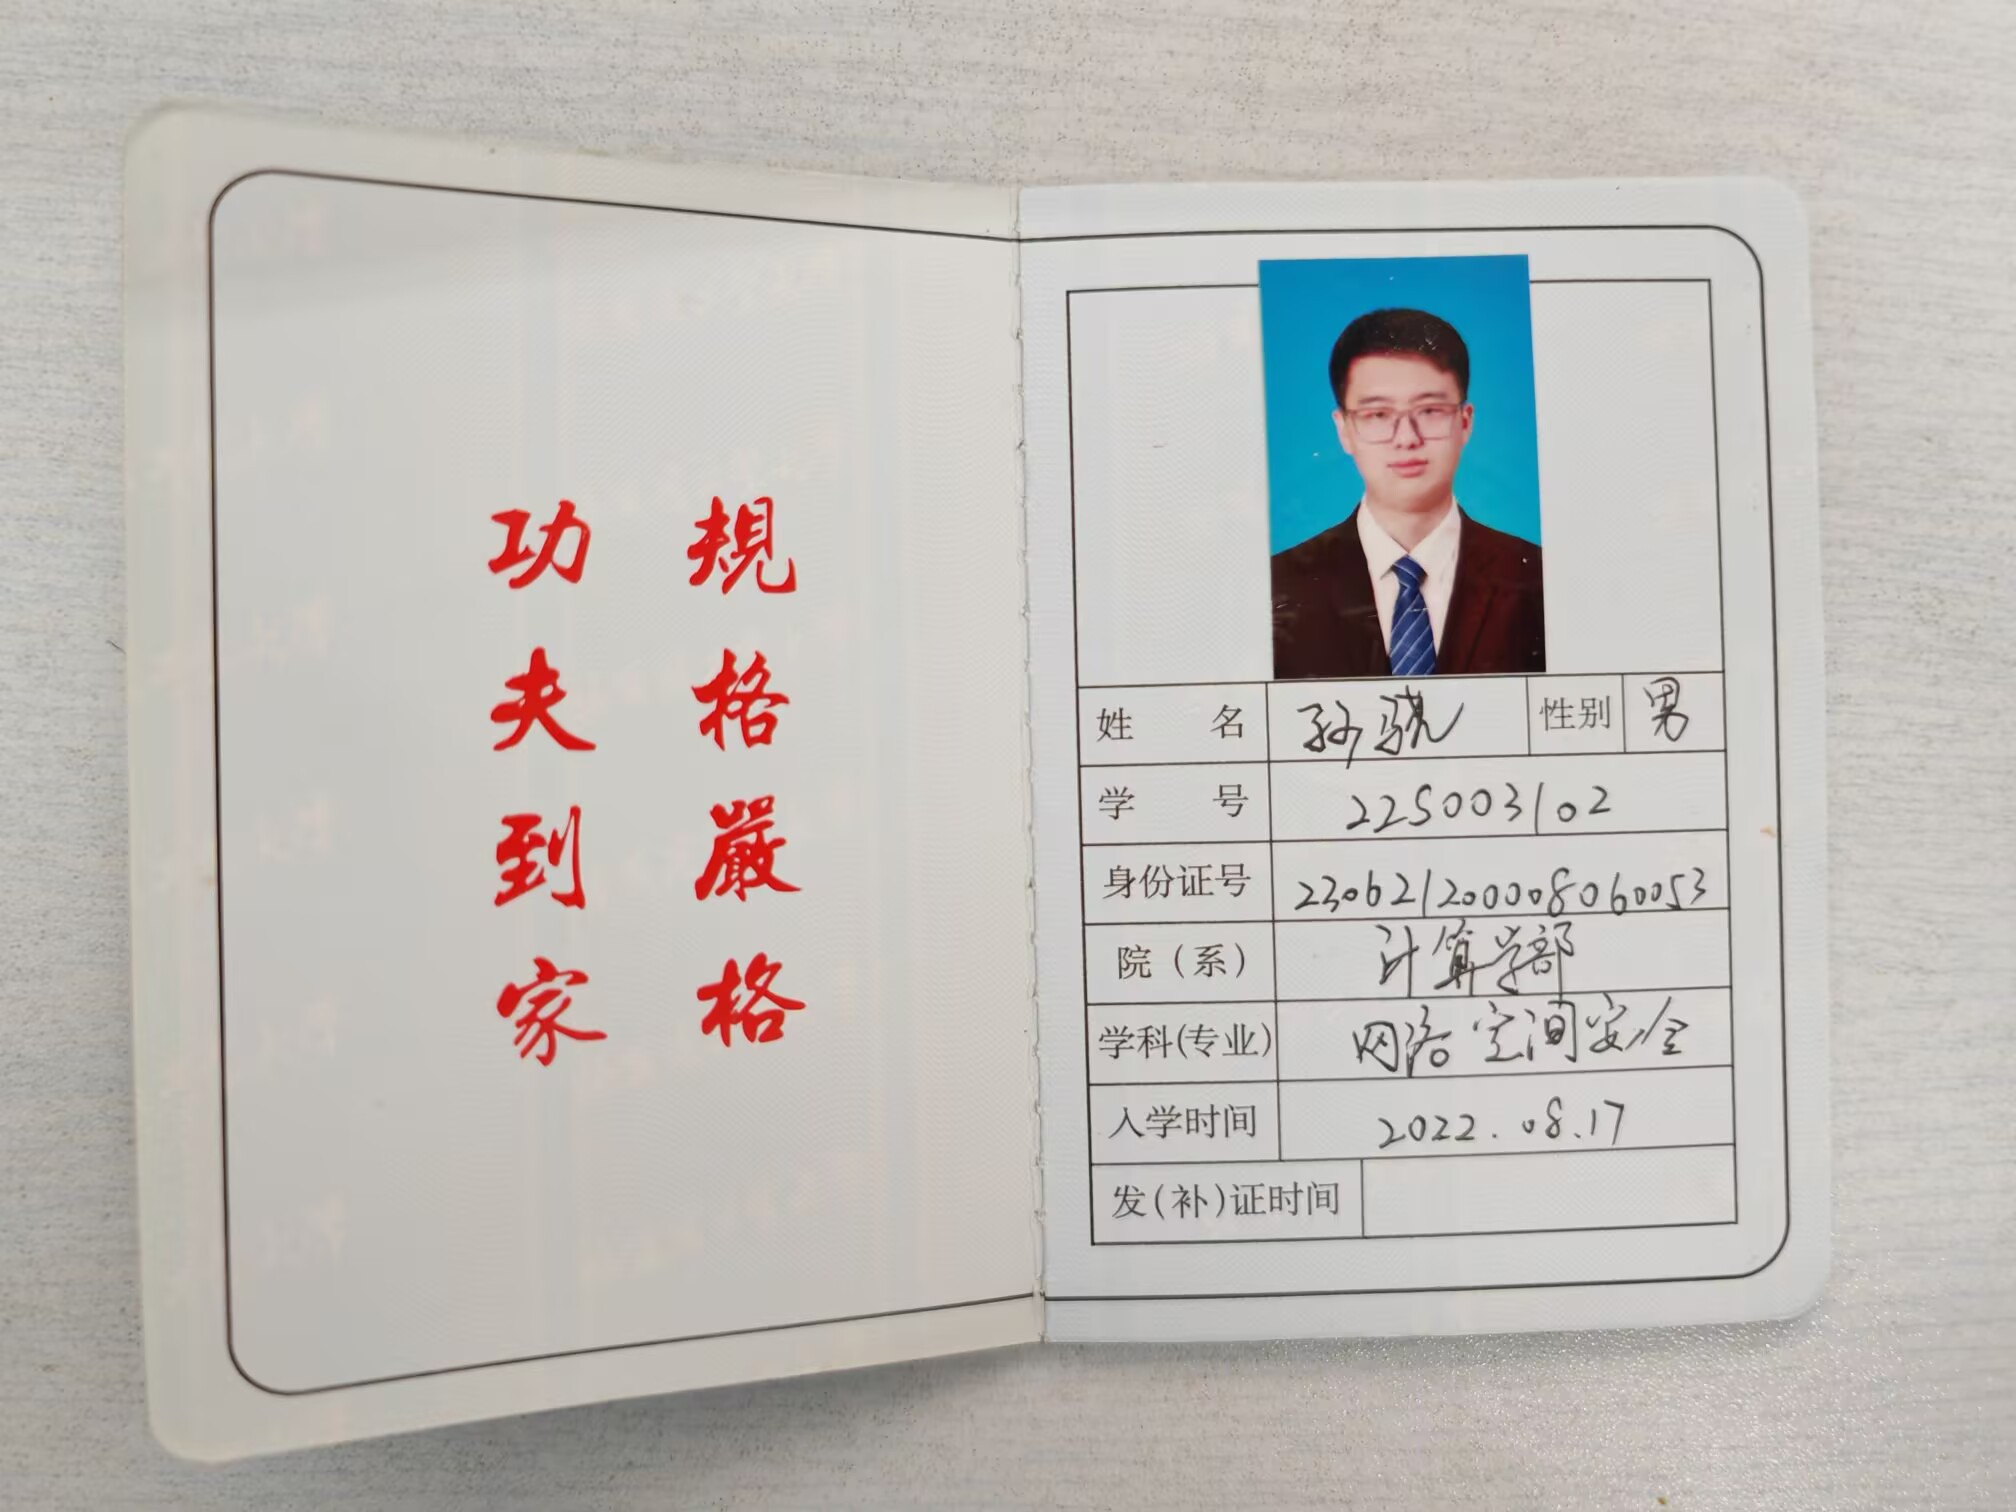 規格嚴格
功夫到家
姓名 孙骁 性别 男
学号 22S003102
身份证号 230621200008060053
院（系） 计算学部
学科(专业) 网络空间安全
入学时间 2022.08.17
发(补)证时间